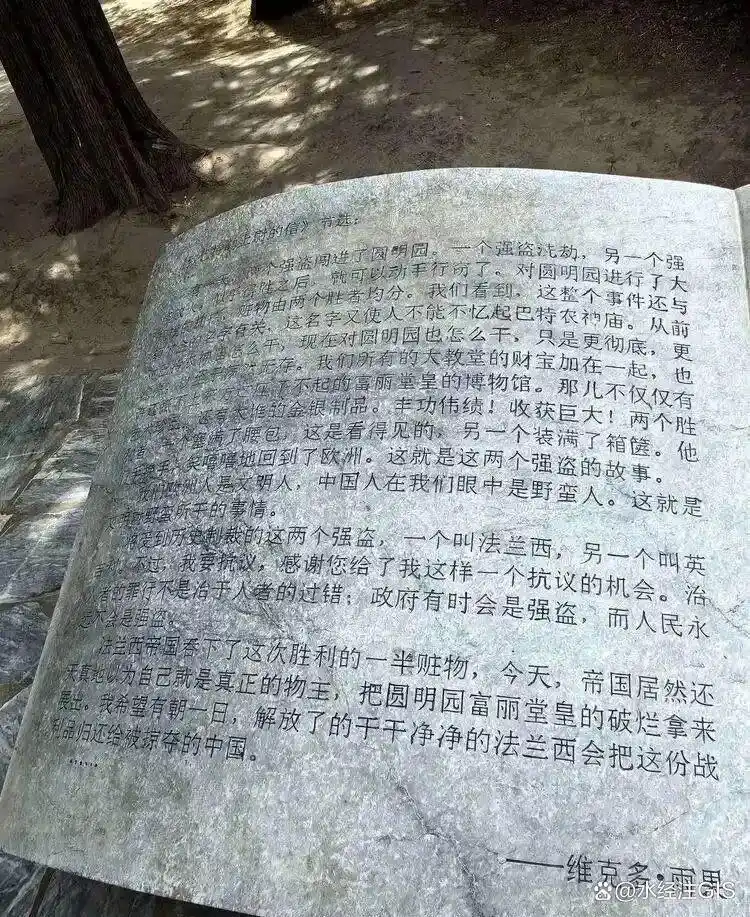 上尉的信》节选:
个强盗闯进了圆明园。一个强盗洗劫,另一个强
之后,就可以动手行窃了。对圆明园进行了大
赃物由两个胜者均分。我们看到,这整个事件还与
的名字有关,这名字又使人不能不忆起巴特农神庙。从前
怎么干,现在对圆明园也怎么干,只是更彻底,更
无存。我们所有的大教堂的财宝加在一起,也
了不起的富丽堂皇的博物馆。那儿不仅仅有
的金银制品。丰功伟绩!收获巨大!两个胜
塞满了腰包,这是看得见的,另一个装满了箱箧。他
笑嘻嘻地回到了欧洲。这就是这两个强盗的故事。
欧洲人是文明人,中国人在我们眼中是野蛮人。这就是
野蛮所干的事情。
将受到历史制裁的这两个强盗,一个叫法兰西,另一个叫英
不过,我要抗议,感谢您给了我这样一个抗议的机会。治
人者的罪行不是治于人者的过错;政府有时会是强盗,而人民永
远不会是强盗。
法兰西帝国吞下了这次胜利的一半赃物,今天,帝国居然还
天真地以为自己就是真正的物主,把圆明园富丽堂皇的破烂拿来
展出。我希望有朝一日,解放了的干干净净的法兰西会把这份战
利品归还给被掠夺的中国。
……
——维克多·雨果
@水经注GIS